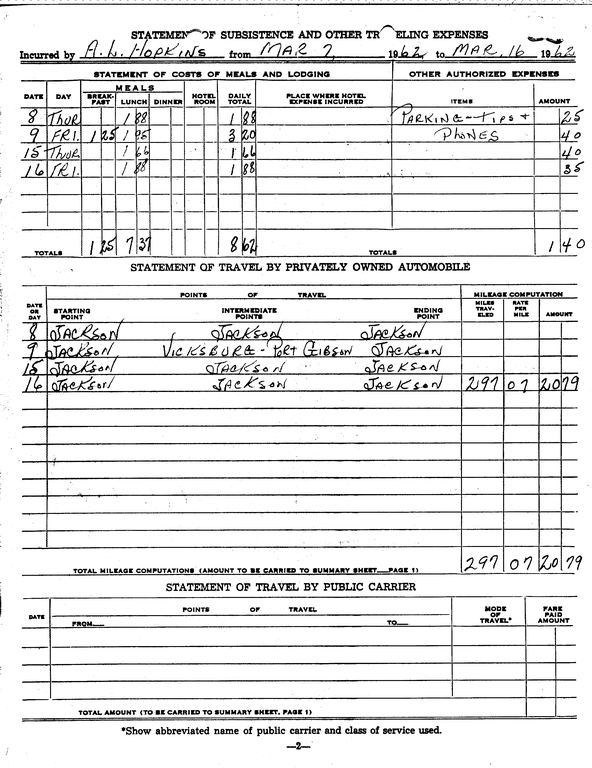 STATEMENT OF SUBSISTENCE AND OTHER TR ELING EXPENSES
Incurred by A.L. HOPKINS from MAR 7, 1962 to MAR. 16 1962
STATEMENT OF COSTS OF MEALS AND LODGING OTHER AUTHORIZED EXPENSES
DATE DAY MEALS BREAK-FAST LUNCH DINNER HOTEL ROOM DAILY TOTAL PLACE WHERE HOTEL EXPENSE INCURRED ITEMS AMOUNT
8 THUR 1 88 1 88 PARKING-TIPS+ 25
9 FRI. 1 25 1 95 3 20 PHONES 40
15 THUR 1 66 1 66 40
16 FRI. 1 88 1 88 35
TOTALS 1 25 7 37 8 62 TOTALS 1 40
STATEMENT OF TRAVEL BY PRIVATELY OWNED AUTOMOBILE
POINTS OF TRAVEL MILEAGE COMPUTATION
DATE OR DAY STARTING POINT INTERMEDIATE POINTS ENDING POINT MILES TRAV-ELED RATE PER MILE AMOUNT
8 JACKSON JACKSON JACKSON
9 JACKSON VICKSBURG - PORT GIBSON JACKSON
15 JACKSON JACKSON JACKSON
16 JACKSON JACKSON JACKSON 297 07 20 79
TOTAL MILEAGE COMPUTATIONS (AMOUNT TO BE CARRIED TO SUMMARY SHEET PAGE 1) 297 07 20 79
STATEMENT OF TRAVEL BY PUBLIC CARRIER
DATE POINTS OF TRAVEL MODE OF TRAVEL* FARE PAID AMOUNT
FROM TO
TOTAL AMOUNT (TO BE CARRIED TO SUMMARY SHEET, PAGE 1)
*Show abbreviated name of public carrier and class of service used.
—2—